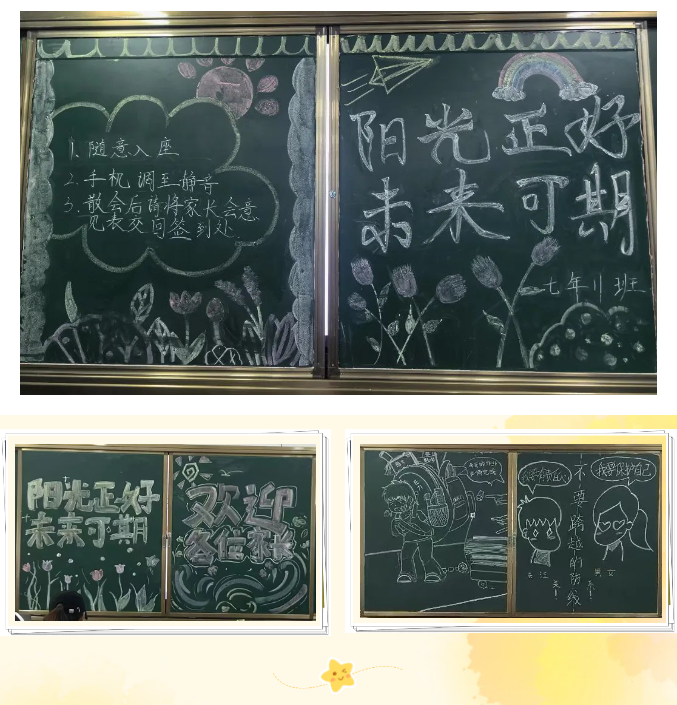 1. 随意入座
2. 手机调至静音
3. 散会后请将家长会意
见表交回签到处
阳光正好
未来可期
七年11班
阳光正好
未来可期
欢迎
各位家长
我要保护自己
不要跨越的防线
男女